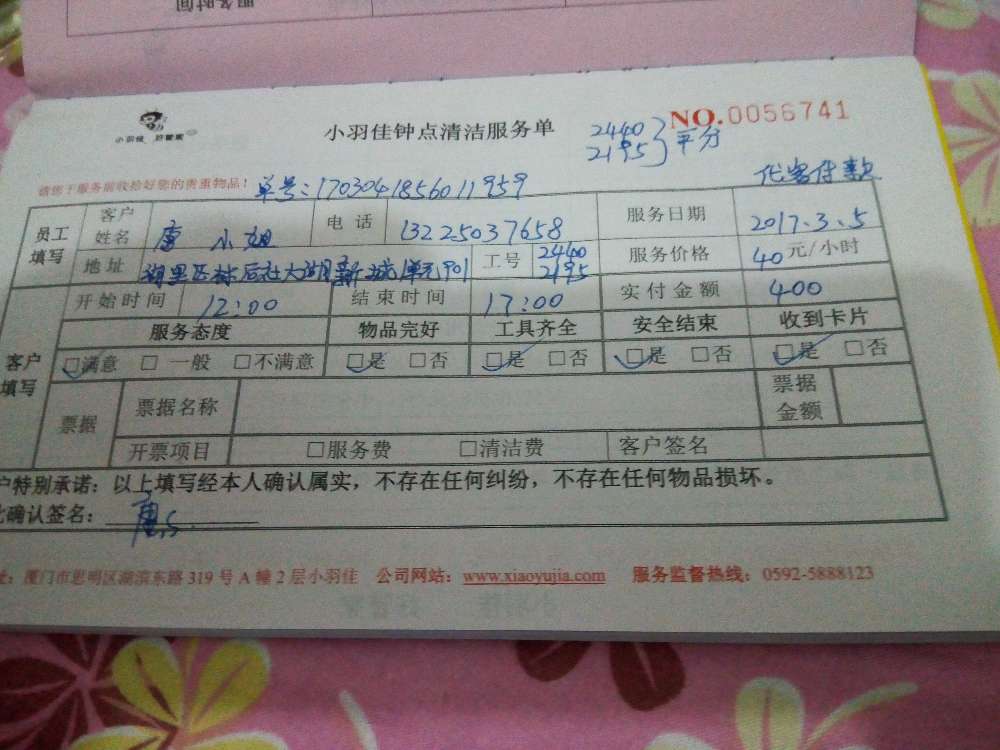 服务时间
小羽佳 好管家
小羽佳钟点清洁服务单
NO.0056741
2440
2195
平分
请您于服务前收拾好您的贵重物品!
单号:1703041856011959
代客付款
员工填写 客户姓名 唐小姐 电话 13225037658 服务日期 2017.3.5
地址 湖里区 后社 大湖 新城 901 工号 2440 2195 服务价格 40元/小时
开始时间 12:00 结束时间 17:00 实付金额 400
客户填写 服务态度 物品完好 工具齐全 安全结束 收到卡片
□满意 □一般 □不满意 □是 □否 □是 □否 □是 □否 □是 □否
票据 票据名称 票据金额
开票项目 □服务费 □清洁费 客户签名
户特别承诺:以上填写经本人确认属实,不存在任何纠纷,不存在任何物品损坏。
此确认签名: 唐S
址:厦门市思明区湖滨东路 319 号 A 幢 2 层小羽佳 公司网站:www.xiaoyujia.com 服务监督热线:0592-5888123